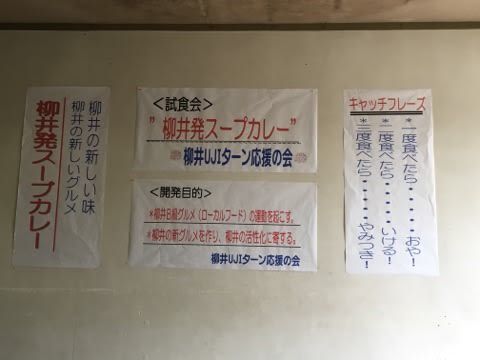 柳井の新しい味
柳井の新しいグルメ
柳井発スープカレー
＜試食会＞
”柳井発スープカレー”
※柳井UJIターン応援の会※
＜開発目的＞
＊柳井B級グルメ（ローカルフード）の運動を起こす。
＊柳井の新グルメを作り、柳井の活性化に寄する。
柳井UJIターン応援の会
キャッチフレーズ
＊一度食べたら・・・・・・おや！
＊二度食べたら・・・・・・いける！
＊三度食べたら・・・・・・やみつき！